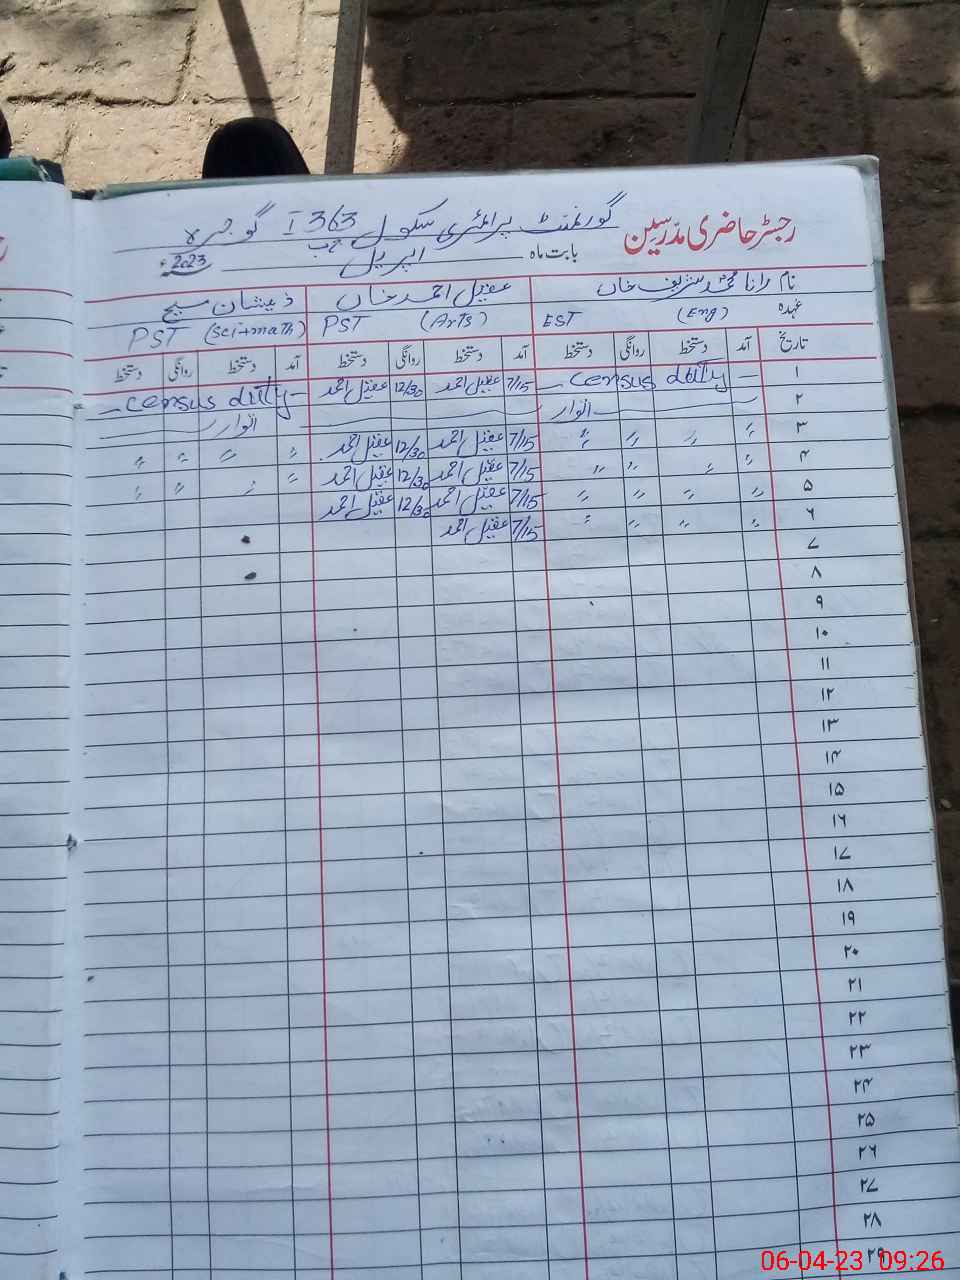 رجسٹر حاضری مدرسین گورنمنٹ پرائمری سکول 363 I ج ب گوجرہ
بابت ماہ اپریل 2023ء
نام رانا محمد شریف خاں عقیل احمد خاں ذیشان مسیح
عہدہ EST (Eng) PST (Arts) PST (Sci+math)
تاریخ آمد دستخط روانگی دستخط آمد دستخط روانگی دستخط آمد دستخط روانگی دستخط
۱ – census duty – 7/15 عقیل احمد 12/30 عقیل احمد – census duty –
۲ اتوار اتوار
۳ 〃 〃 〃 〃 7/15 عقیل احمد 12/30 عقیل احمد 〃 〃 〃 〃
۴ 〃 〃 〃 〃 7/15 عقیل احمد 12/30 عقیل احمد 〃 〃 〃 〃
۵ 〃 〃 〃 〃 7/15 عقیل احمد 12/30 عقیل احمد
۶ 〃 〃 〃 〃 7/15 عقیل احمد
۷
۸
۹
۱۰
۱۱
۱۲
۱۳
۱۴
۱۵
۱۶
۱۷
۱۸
۱۹
۲۰
۲۱
۲۲
۲۳
۲۴
۲۵
۲۶
۲۷
۲۸
۲۹
06-04-23 09:26